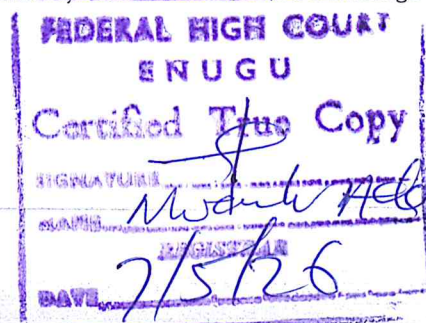 FEDERAL HIGH COURT
ENUGU
Certified True Copy
SIGNATURE
NAME
REGISTRAR
DATE 7/5/26